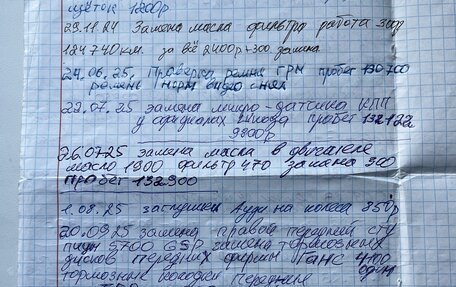 щёток 1200р
29.11.24 Замена масла фильтра работа 300р
124740км. за всё 2400р+300 замена
24.06.25. Проверка ремня ГРМ пробег 130700
ремень норм видео снял
22.07.25 замена микро-датчика КПП
у официалов шкода пробег 132122
9800р
26.07.25 замена масла в двигателе
масло 1900 фильтр 470 замена 300
пробег 132300
1.08.25 заглушки Ауди на колеса 850р
20.09.25 замена правой передней сту
пицы 5700 GSP замена тормозных
дисков передних фирмы Ганс 4100
один
тормозные колодки передние